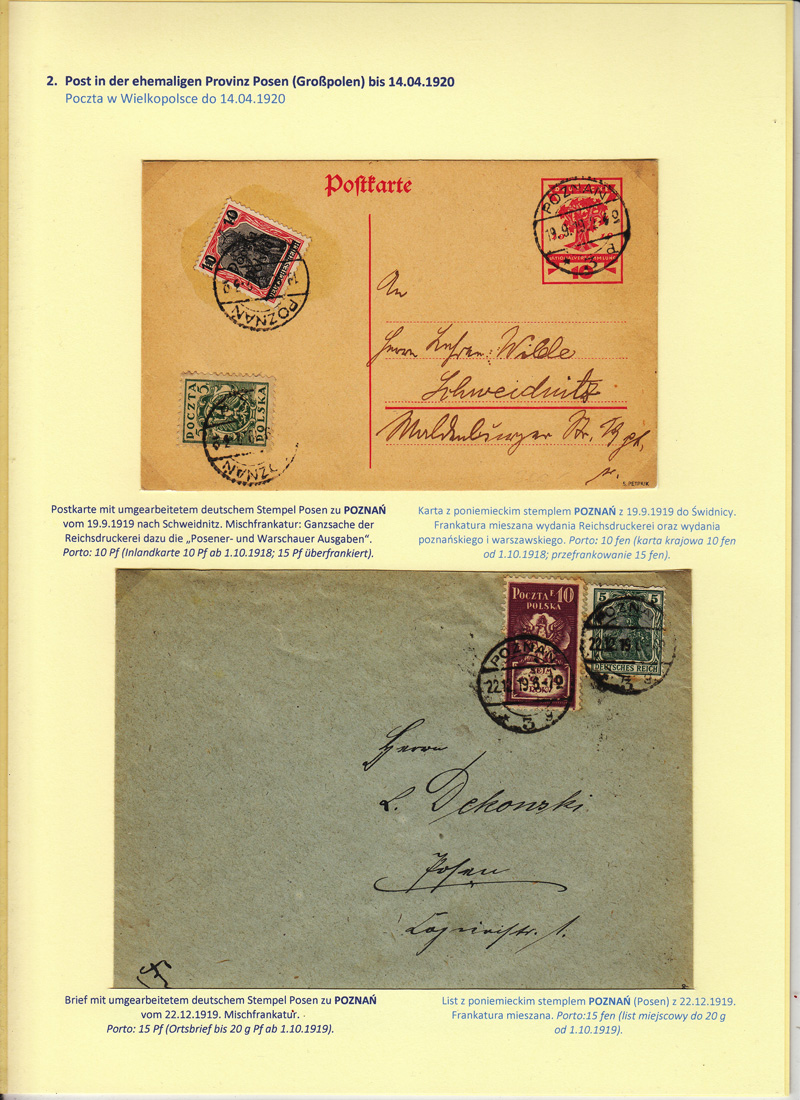 2. Post in der ehemaligen Provinz Posen (Großpolen) bis 14.04.1920
Poczta w Wielkopolsce do 14.04.1920
Postkarte
10
10
POZNAŃ
POZNAŃ
19.9.19
NATIONALVERSAMMLUNG
10
An
Herrn Wilde
Schweidnitz
Waldenburger Str.
POCZTA
5
POLSKA
POZNAŃ
Postkarte mit umgearbeitetem deutschem Stempel Posen zu POZNAŃ
vom 19.9.1919 nach Schweidnitz. Mischfrankatur: Ganzsache der
Reichsdruckerei dazu die „Posener- und Warschauer Ausgaben“.
Porto: 10 Pf (Inlandkarte 10 Pf ab 1.10.1918; 15 Pf überfrankiert).
Karta z poniemieckim stemplem POZNAŃ z 19.9.1919 do Świdnicy.
Frankatura mieszana wydania Reichsdruckerei oraz wydania
poznańskiego i warszawskiego. Porto: 10 fen (karta krajowa 10 fen
od 1.10.1918; przefrankowanie 15 fen).
POCZTA F 10
POLSKA
5 5
DEUTSCHES REICH
POZNAŃ
22.12.19
POZNAŃ
22.12.19
Herrn
L. Dekonski
Posen
Brief mit umgearbeitetem deutschem Stempel Posen zu POZNAŃ
vom 22.12.1919. Mischfrankatur.
Porto: 15 Pf (Ortsbrief bis 20 g Pf ab 1.10.1919).
List z poniemieckim stemplem POZNAŃ (Posen) z 22.12.1919.
Frankatura mieszana. Porto:15 fen (list miejscowy do 20 g
od 1.10.1919).